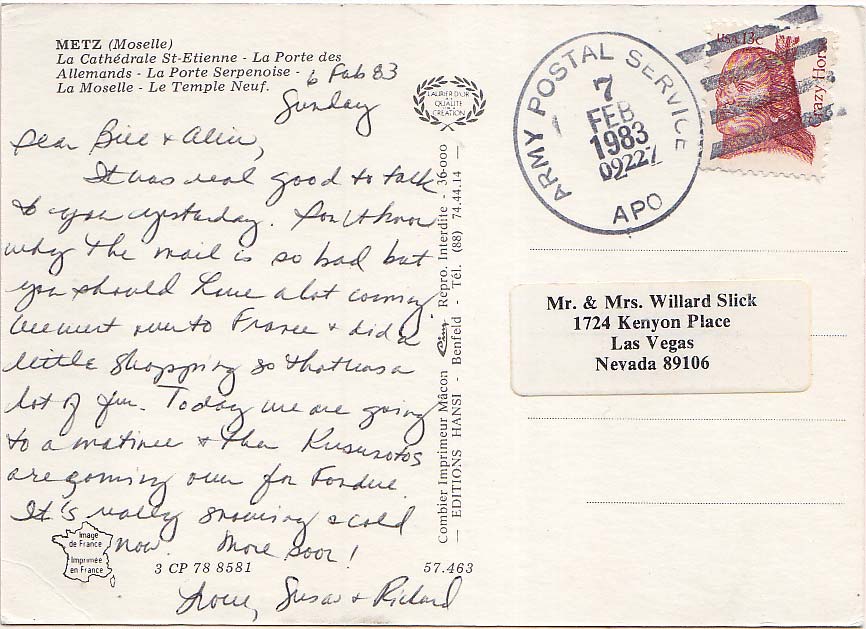 METZ (Moselle)
La Cathédrale St-Etienne - La Porte des
Allemands - La Porte Serpenoise -
La Moselle - Le Temple Neuf.
6 Feb 83
Sunday
Dear Bill + Alice,
It was real good to talk
to you yesterday. Don't know
why the mail is so bad but
you should have a lot coming
We went over to France + did a
little shopping so that was a
lot of fun. Today we are going
to a matinee + then
are coming over for Fondue.
It's really snowing & cold
now. More soon!
Love, Susan + Richard
LAURIER D'OR
QUALITE
CREATION
Combier Imprimeur Mâcon Cim Repro. Interdite - 36-000
— EDITIONS HANSI - Benfeld - Tél. (88) 74.44.14 —
Image
de France
Imprimée
en France
3 CP 78 8581
57.463
ARMY POSTAL SERVICE
7
FEB
1983
09227
APO
USA 13c
Crazy Horse
Mr. & Mrs. Willard Slick
1724 Kenyon Place
Las Vegas
Nevada 89106